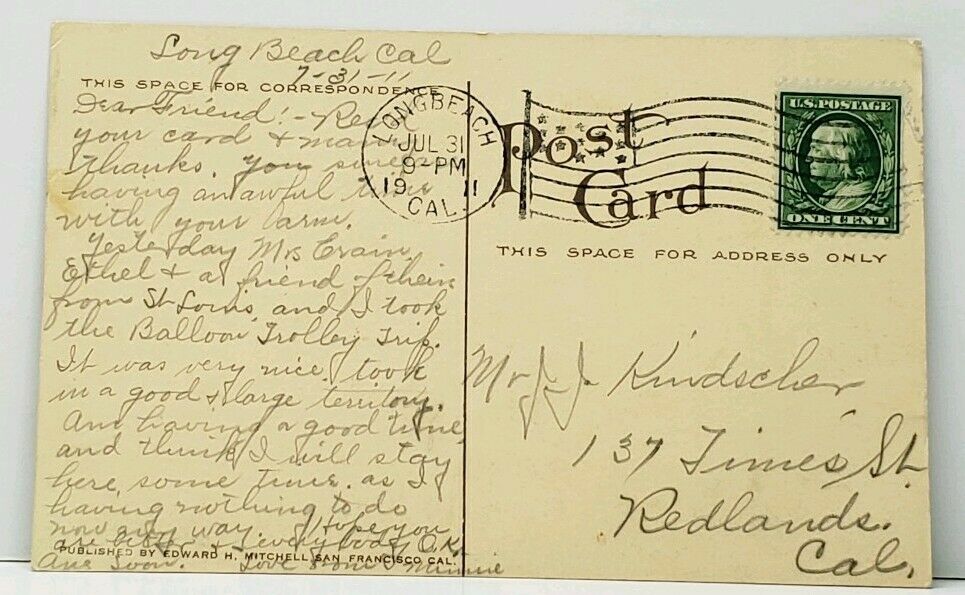 Long Beach Cal
7-31-11
THIS SPACE FOR CORRESPONDENCE
Dear Friend! - Rec'd
your card & many
thanks. You
having an awful time
with your arm.
Yesterday Mrs Crain,
Ethel & a friend of their
from St Louis and I took
the Balloon Trolley Trip.
It was very nice, took
in a good & large territory.
Am having a good time,
and think I will stay
here, some time. as I
having nothing to do
now any way. Hope you
are & everybody O.K.
PUBLISHED BY EDWARD H. MITCHELL SAN FRANCISCO CAL.
Ans Soon. Love from Minnie
LONG BEACH
JUL 31
9-PM
19 11
CAL.
Post
Card
U.S. POSTAGE
ONE CENT
THIS SPACE FOR ADDRESS ONLY
Mr J. J. Kindscher
137 Times St.
Redlands.
Cal.